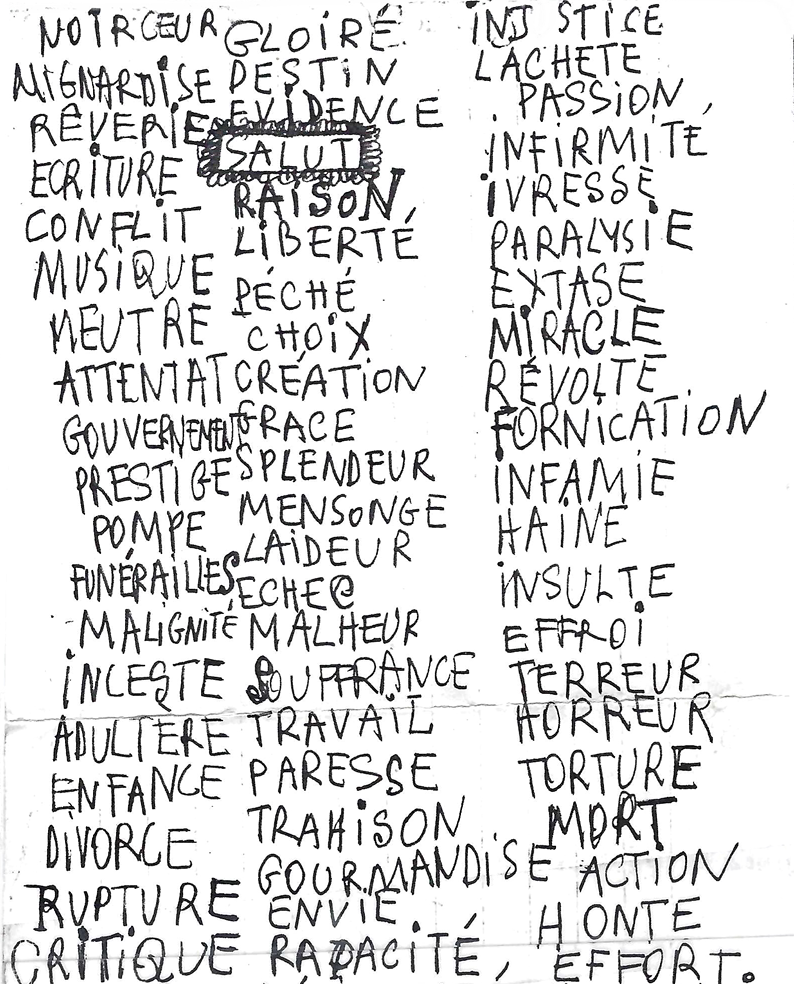 NOIRCEUR
MIGNARDISE
RÊVERIE
ECRITURE
CONFLIT
MUSIQUE
NEUTRE
ATTENTAT
GOUVERNEMENT
PRESTIGE
POMPE
FUNÉRAILLES
MALIGNITÉ
INCESTE
ADULTERE
ENFANCE
DIVORCE
RUPTURE
CRITIQUE
GLOIRÉ
DESTIN
EVIDENCE
SALUT
RAISON,
LIBERTÉ
PÉCHÉ
CHOIX
CRÉATION
GRACE
SPLENDEUR
MENSONGE
LAIDEUR
ECHEC
MALHEUR
SOUFFRANCE
TRAVAIL
PARESSE
TRAHISON
GOURMANDISE
ENVIE
RAPACITÉ,
INJ STICE
LACHETE
PASSION,
INFIRMITE
IVRESSE
PARALYSIE
EXTASE
MIRACLE
RÉVOLTE
FORNICATION
INFAMIE
HAINE
INSULTE
EFFROI
TERREUR
HORREUR
TORTURE
MORT
ACTION
HONTE
EFFORT.